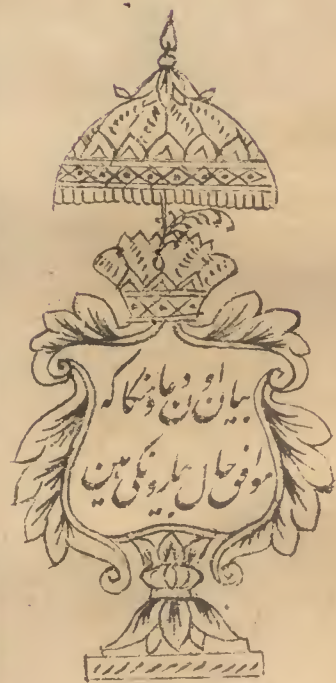 بیان اون دعاونکا کہ
موافق حال بیارونکی ہین